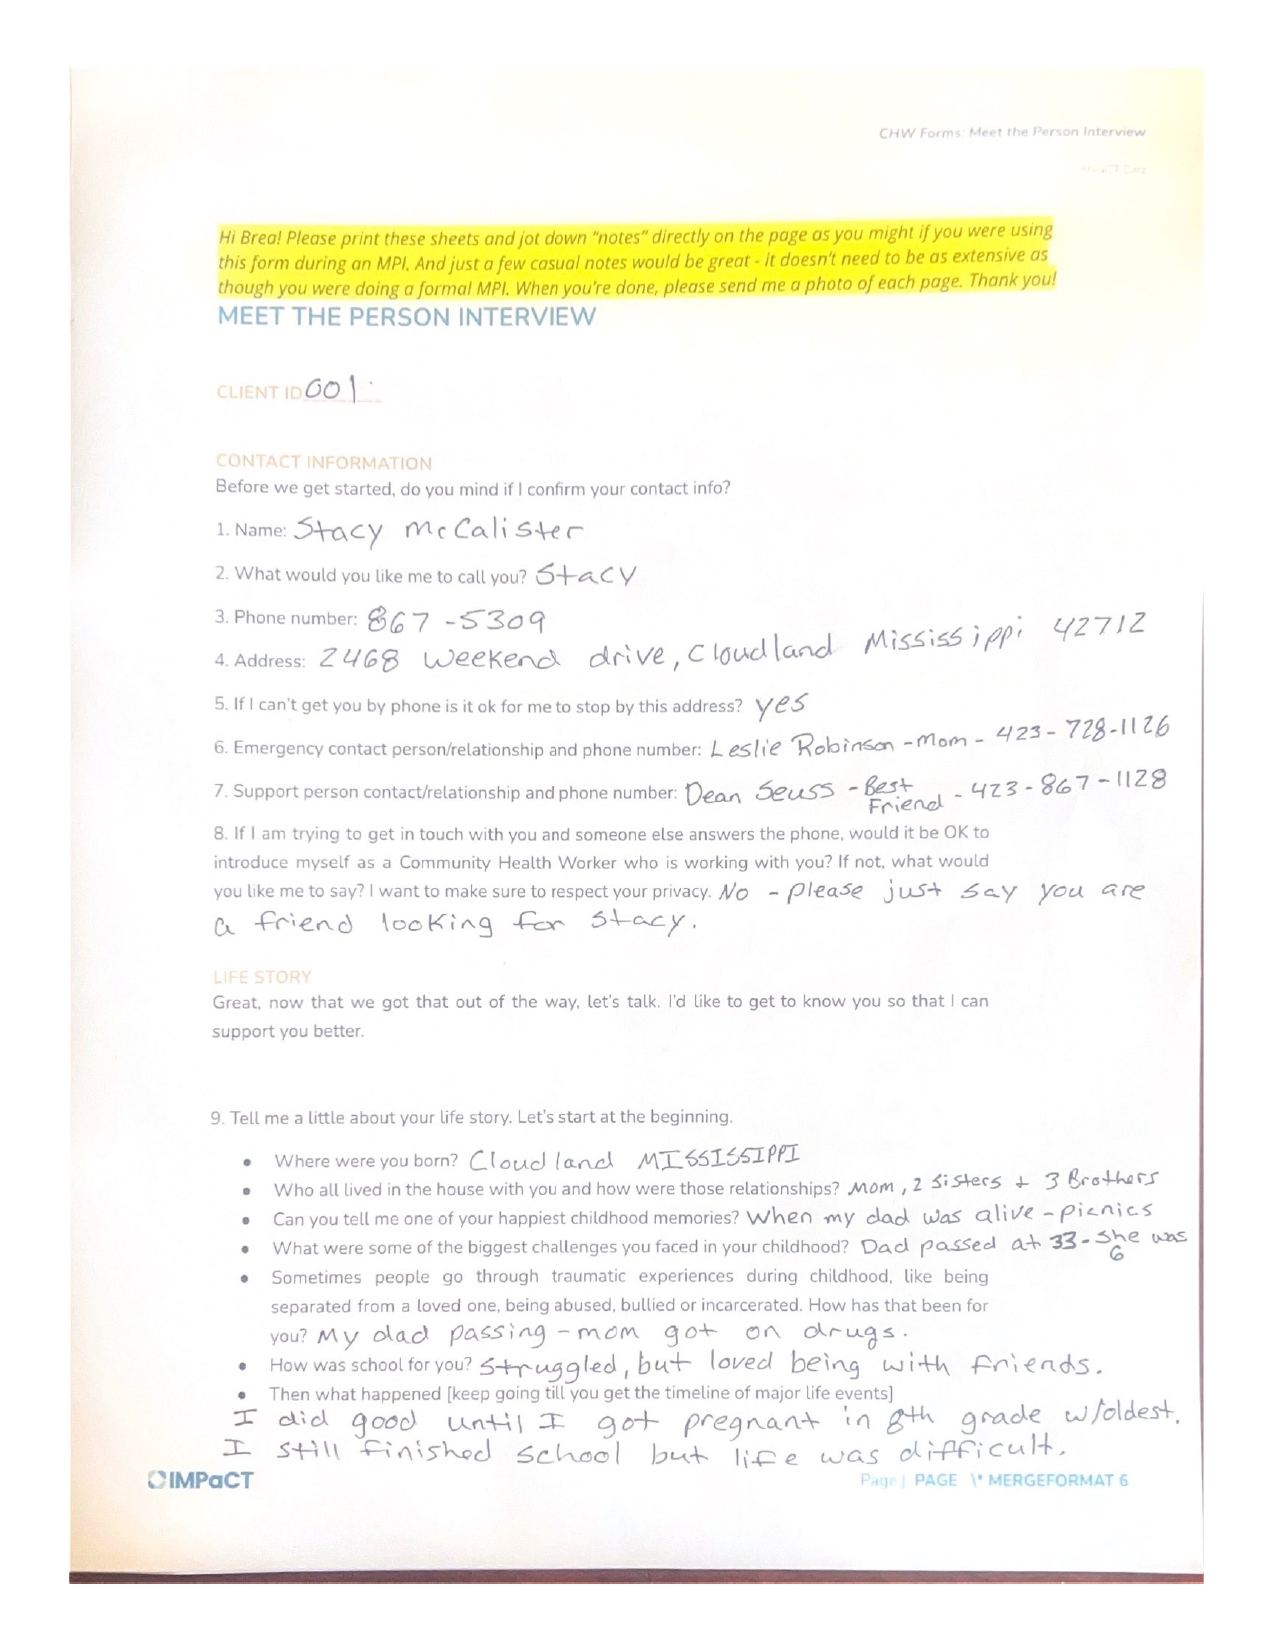 CHW Forms: Meet the Person Interview
Hi Brea! Please print these sheets and jot down "notes" directly on the page as you might if you were using
this form during an MPI. And just a few casual notes would be great - it doesn't need to be as extensive as
though you were doing a formal MPI. When you're done, please send me a photo of each page. Thank you!
MEET THE PERSON INTERVIEW
CLIENT ID 001
CONTACT INFORMATION
Before we get started, do you mind if I confirm your contact info?
1. Name: Stacy McCalister
2. What would you like me to call you? Stacy
3. Phone number: 867-5309
4. Address: 2468 Weekend drive, Cloudland Mississippi 42712
5. If I can't get you by phone is it ok for me to stop by this address? yes
6. Emergency contact person/relationship and phone number: Leslie Robinson - Mom - 423-728-1126
7. Support person contact/relationship and phone number: Dean Seuss - Best Friend - 423-867-1128
8. If I am trying to get in touch with you and someone else answers the phone, would it be OK to
introduce myself as a Community Health Worker who is working with you? If not, what would
you like me to say? I want to make sure to respect your privacy. No - please just say you are
a friend looking for Stacy.
LIFE STORY
Great, now that we got that out of the way, let's talk. I'd like to get to know you so that I can
support you better.
9. Tell me a little about your life story. Let's start at the beginning.
• Where were you born? Cloudland MISSISSIPPI
• Who all lived in the house with you and how were those relationships? Mom, 2 Sisters + 3 Brothers
• Can you tell me one of your happiest childhood memories? When my dad was alive - picnics
• What were some of the biggest challenges you faced in your childhood? Dad passed at 33 - She was 6
• Sometimes people go through traumatic experiences during childhood, like being
separated from a loved one, being abused, bullied or incarcerated. How has that been for
you? My dad passing - mom got on drugs.
• How was school for you? Struggled, but loved being with friends.
• Then what happened [keep going till you get the timeline of major life events]
I did good until I got pregnant in 8th grade w/oldest.
I still finished school but life was difficult.
IMPaCT
Page | PAGE \* MERGEFORMAT 6